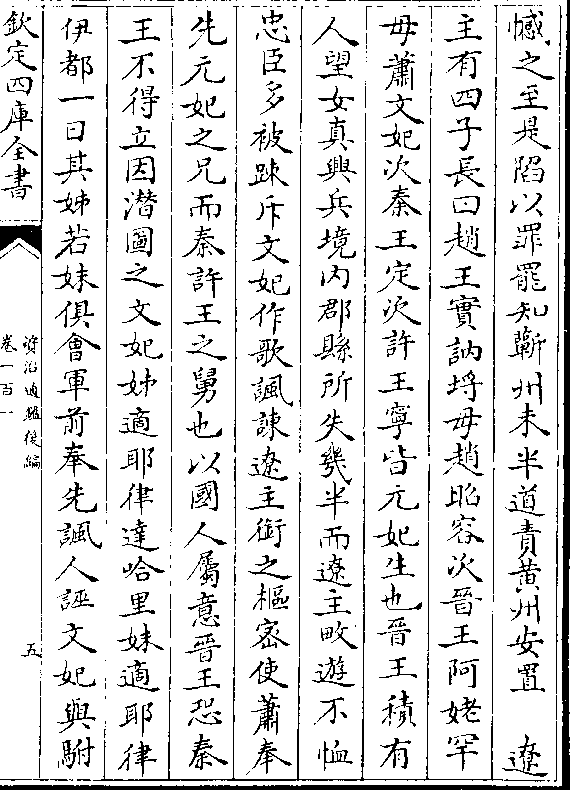 憾之至是陷以罪罷知蘄州未半道責黄州安置　遼
主有四子長曰趙王實訥埒母趙昭容次晉王阿姥罕
母蕭文妃次秦王定次許王寧皆元妃生也晉王積有
人望女真興兵境内郡縣所失幾半而遼主畋遊不恤
忠臣多被踈斥文妃作歌諷諫遼主銜之樞密使蕭奉
先元妃之兄而秦許王之舅也以國人屬意晉王恐秦
王不得立因潛圖之文妃姊適耶律達哈里妹適耶律
伊都一日其姊若妹俱會軍前奉先諷人誣文妃與駙
欽定四庫全書
資治通鑑後編
卷一百一
五